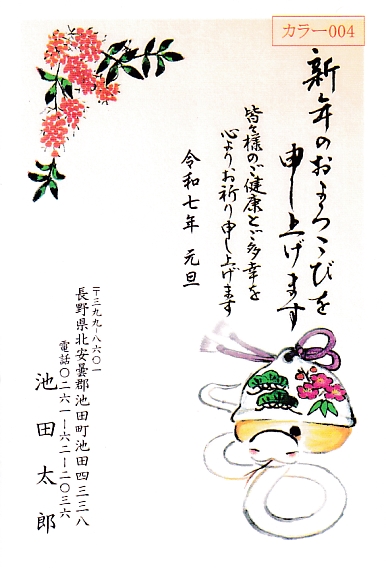 カラー004
新年のおよろこびを
申し上げます
皆々様のご健康とご多幸を
心よりお祈り申し上げます
令和七年 元旦
〒三九九-八六〇一
長野県北安曇郡池田町池田四三三八
電話〇二六一-六二-二〇三六
池田太郎